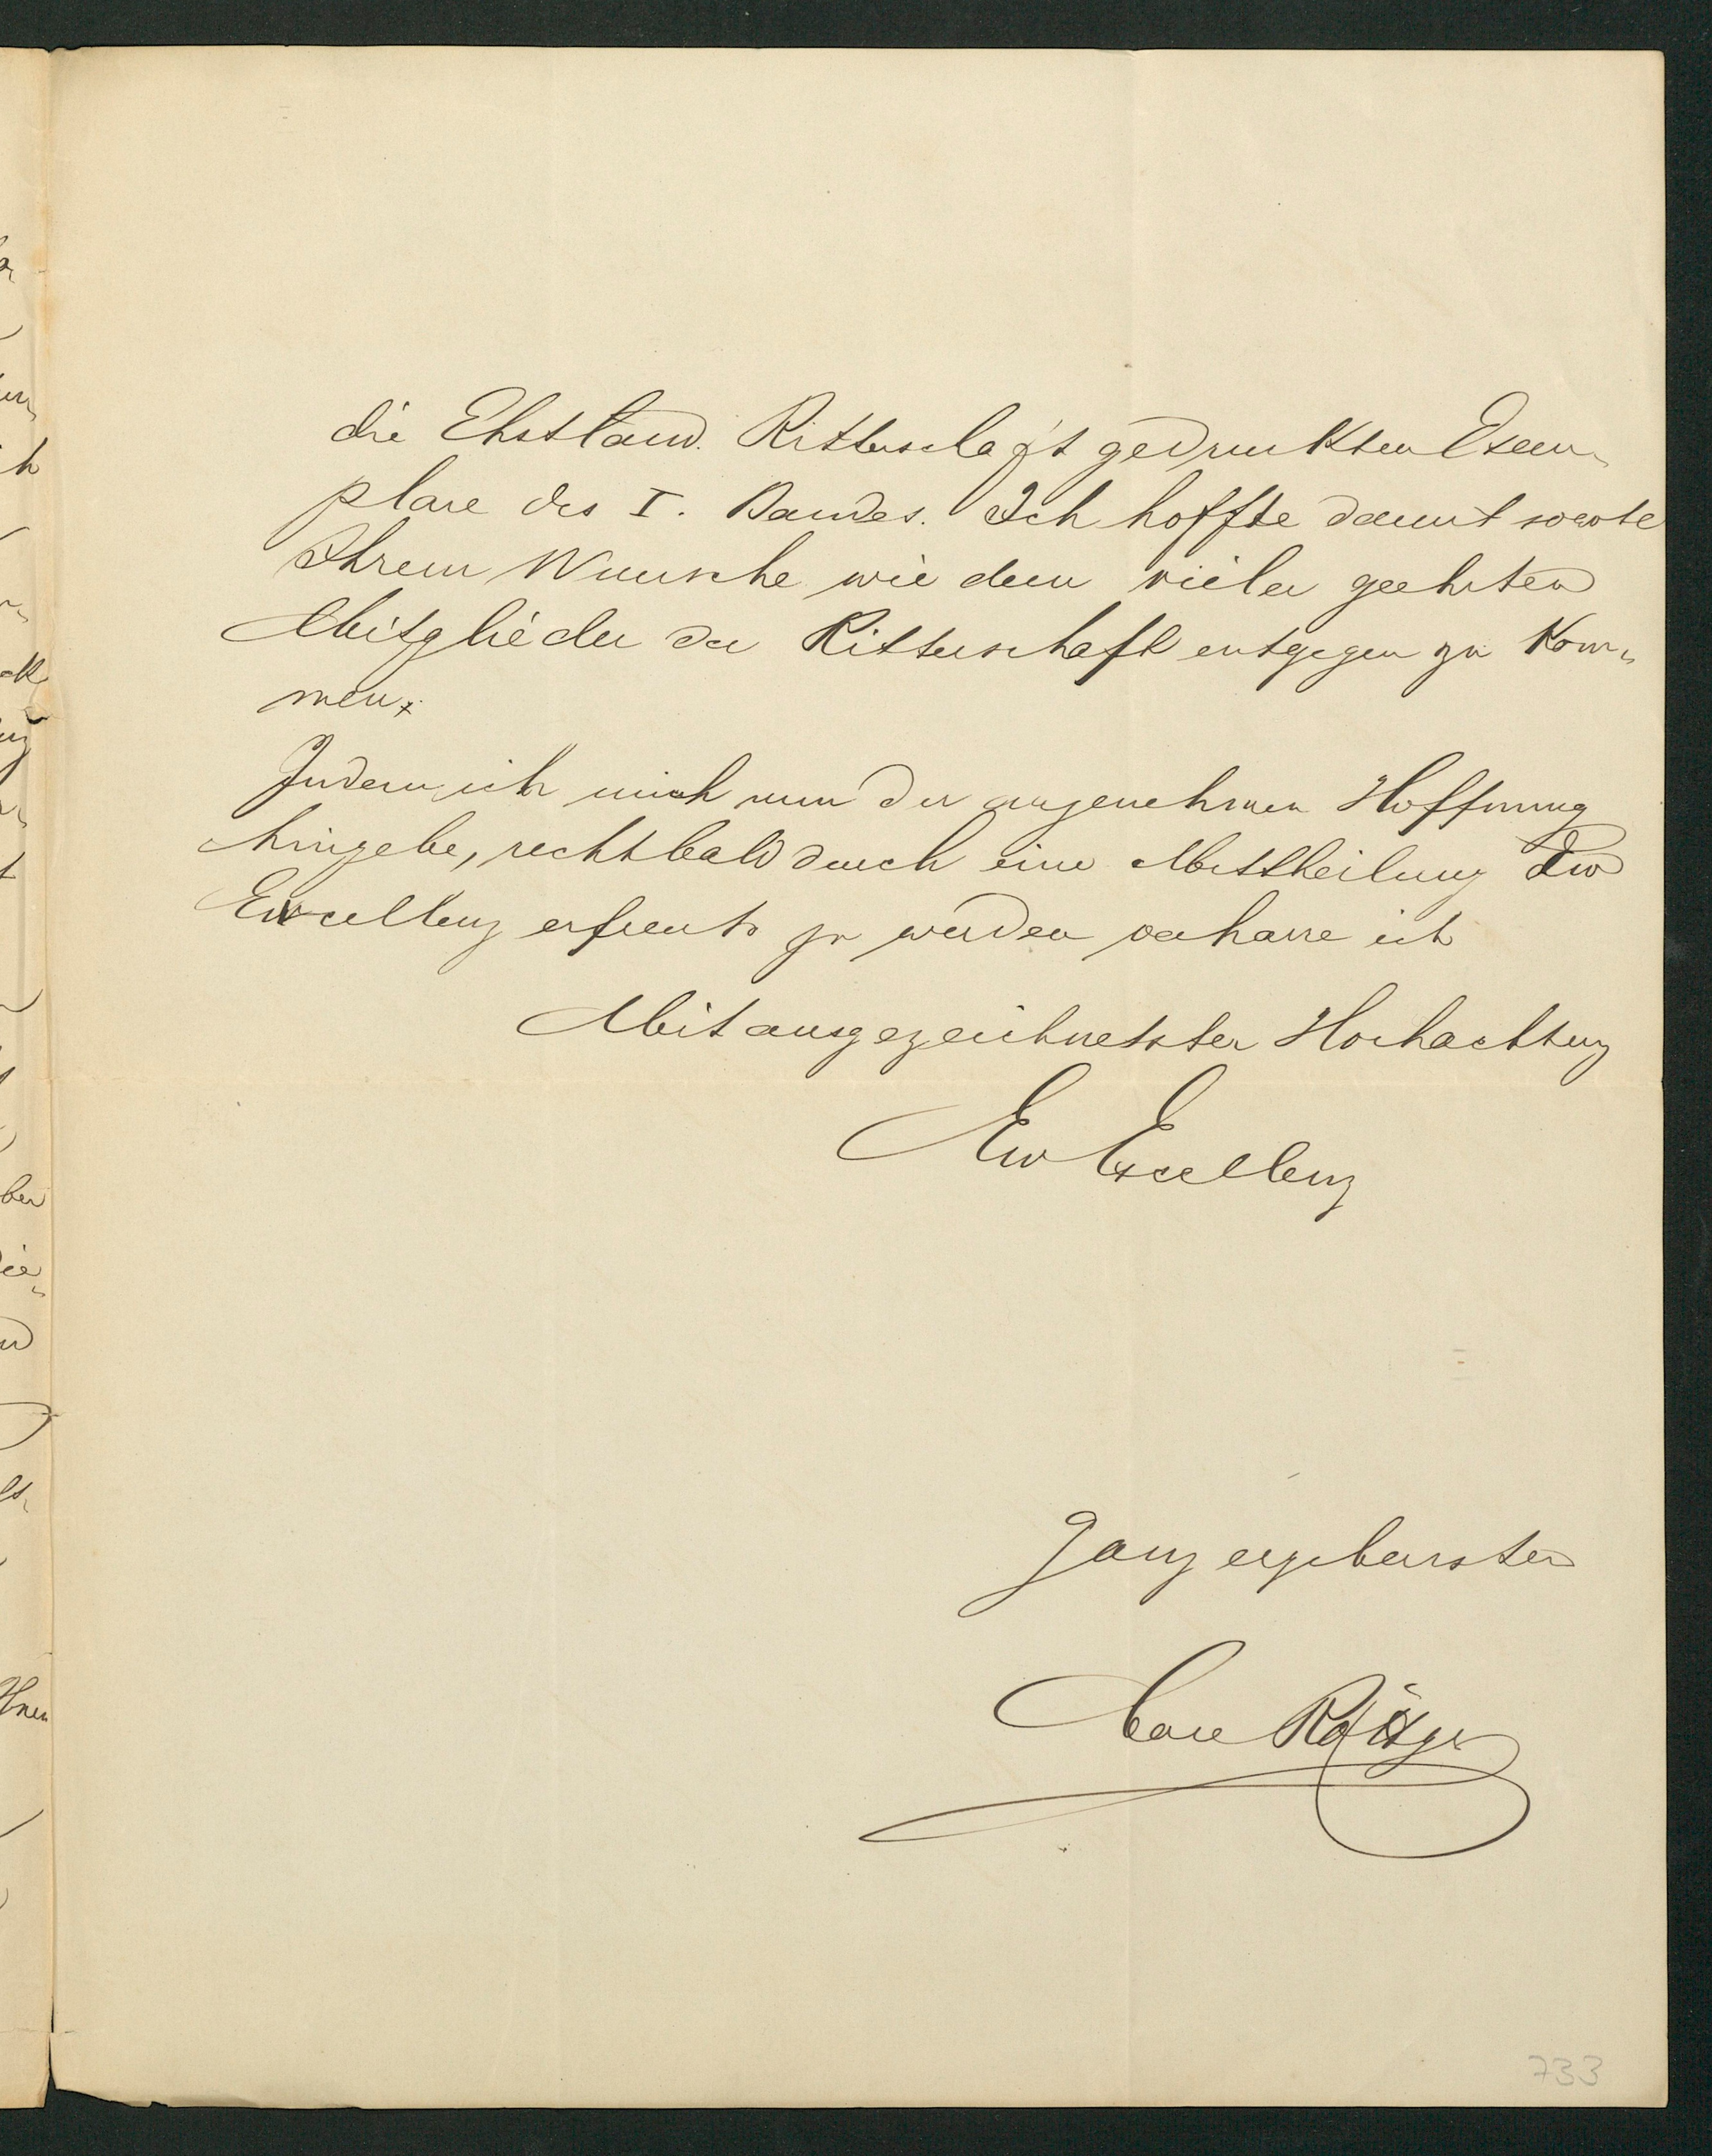 die Ehstländ. Ritterschaft gedruckten Exem-
plare des I. Bandes. Ich hoffte damit sowohl
Ihrem Wunsche wie dem vieler geehrten
Mitglieder der Ritterschaft entgegen zu kom-
men.
Indem ich mich nun der angenehmen Hoffnung
hingebe, recht bald durch eine Mittheilung Ew
Excellenz erfreut zu werden verharre ich
Mit ausgezeichnetster Hochachtung
Ew Excellenz
Ganz ergebenster
Carl Röttger
733